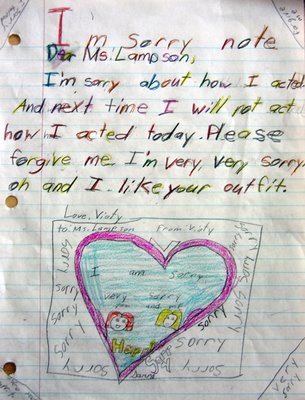 I'm sorry note
Dear Ms. Lampson,
I'm sorry about how I acted
And next time I will not act
how I acted today. Please
forgive me. I'm very, very sorry.
oh and I like your outfit.
Love, Violy
to: Ms. Lampson From Violy
I am sorry
very sorry
you and me
Happy
sorry
sorry
sorry
sorry
sorry
sorry
sorry
sorry
sorry
sorry
sorry
very
sorry